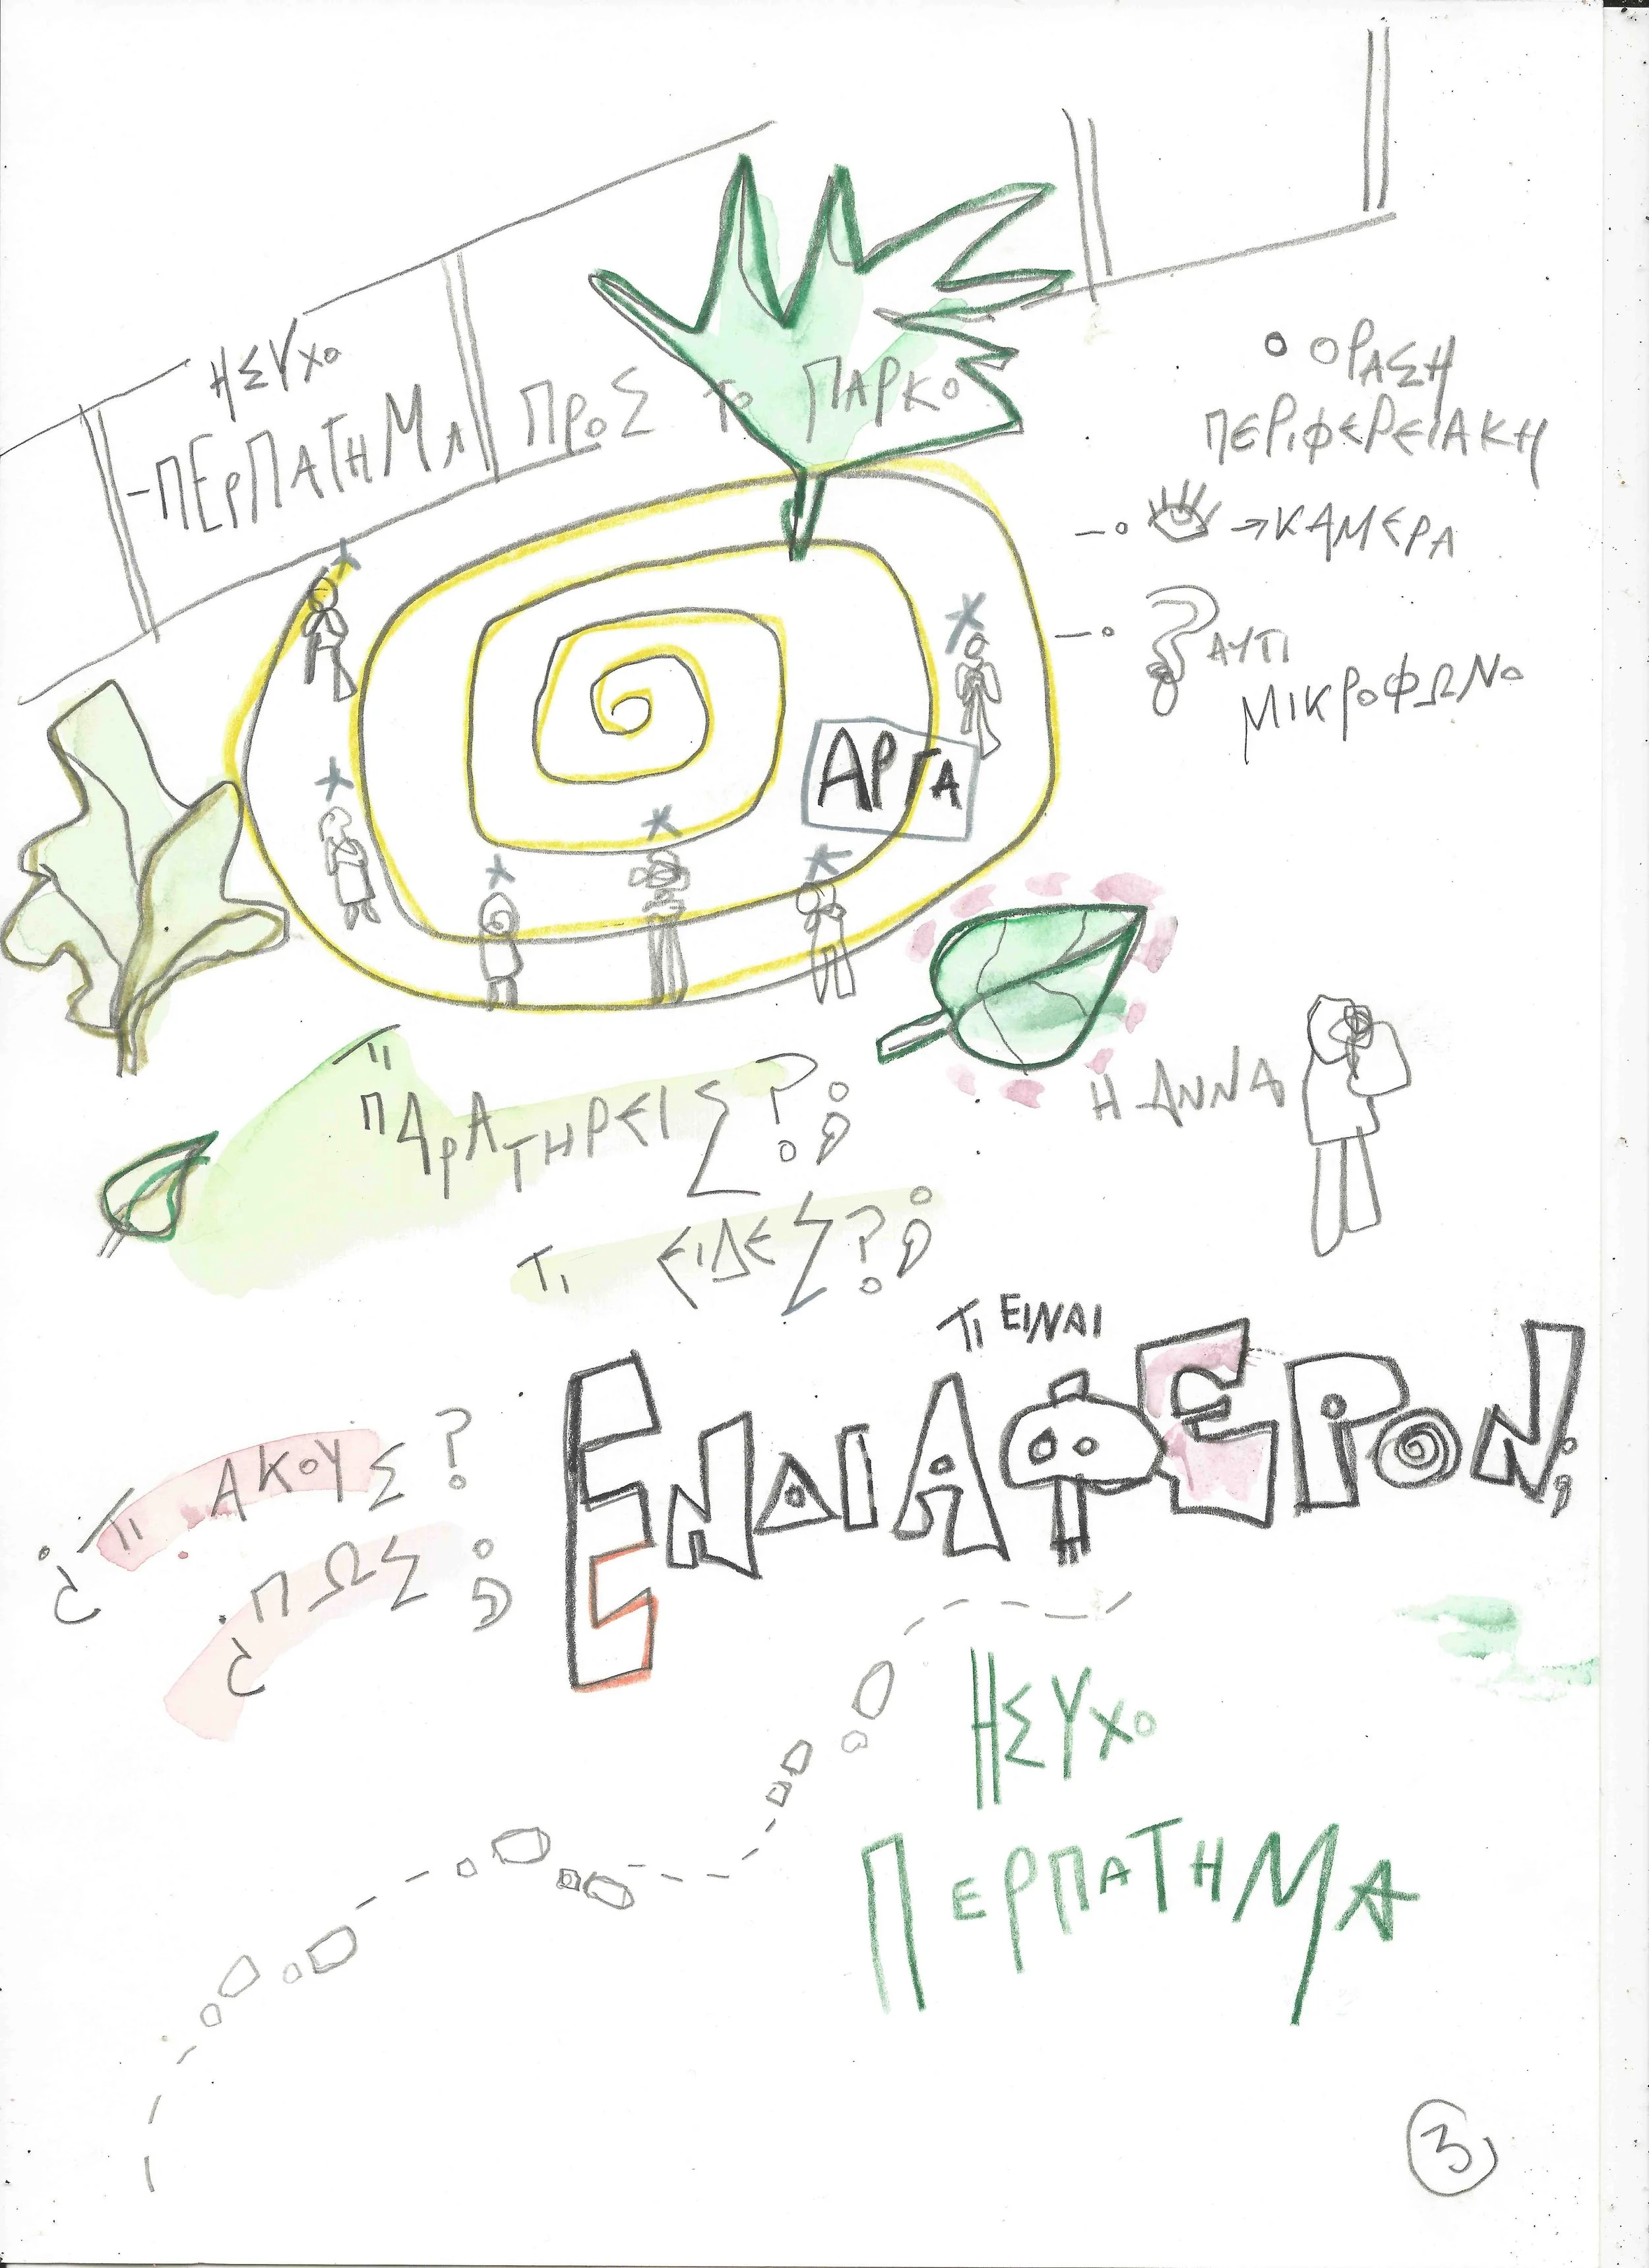 ΗΣΥΧΟ
-ΠΕΡΠΑΤΗΜΑ ΠΡΟΣ ΤΟ ΠΑΡΚΟ
ΟΡΑΣΗ
ΠΕΡΙΦΕΡΕΙΑΚΗ
→ΚΑΜΕΡΑ
ΑΥΤΙ
ΜΙΚΡΟΦΩΝΟ
ΑΡΓΑ
ΠΑΡΑΤΗΡΕΙΣ?;
Η ΑΝΝΑ
ΤΙ ΕΙΔΕΣ?;
ΤΙ ΕΙΝΑΙ
ΕΝΔΙΑΦΕΡΟΝ;
¿ΤΙ ΑΚΟΥΣ?
¿ΠΩΣ;
ΗΣΥΧΟ
ΠΕΡΠΑΤΗΜΑ
3